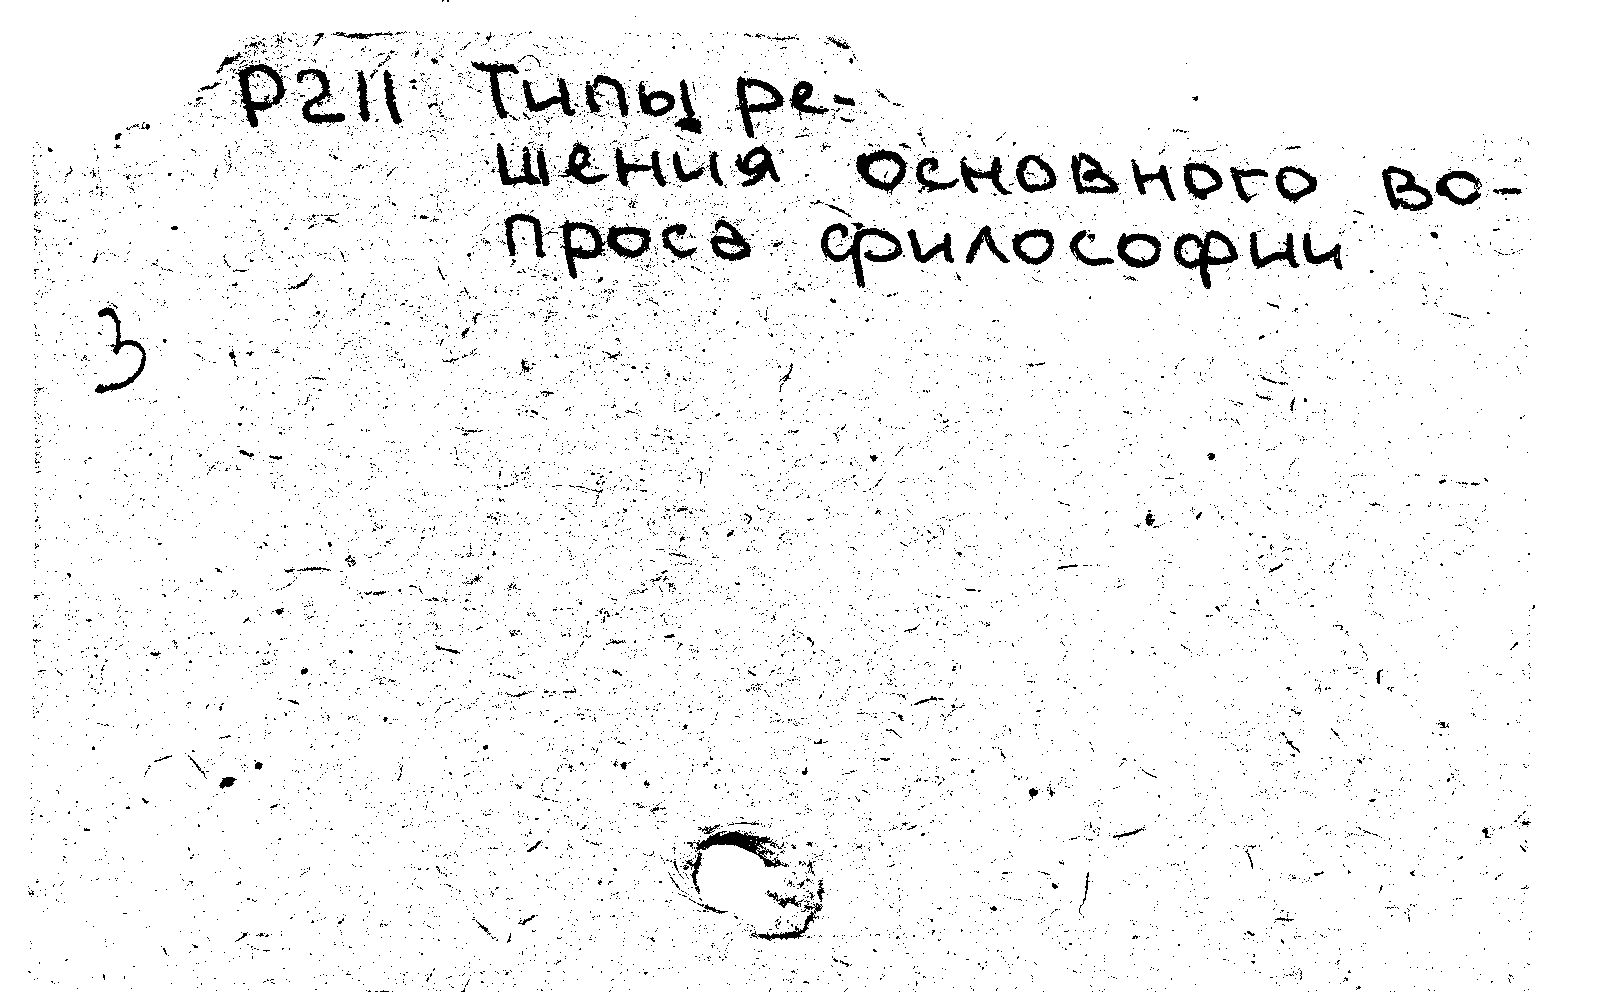 Р211 Типы ре-
шения основного во-
проса философии
3